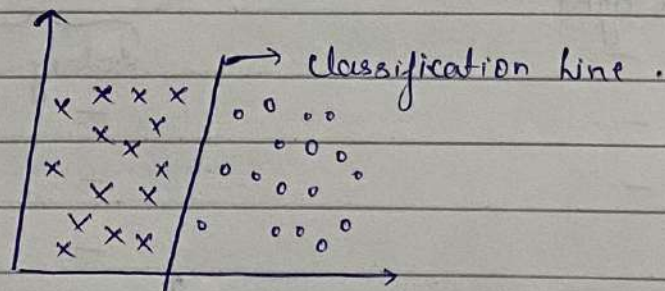 classification Line .